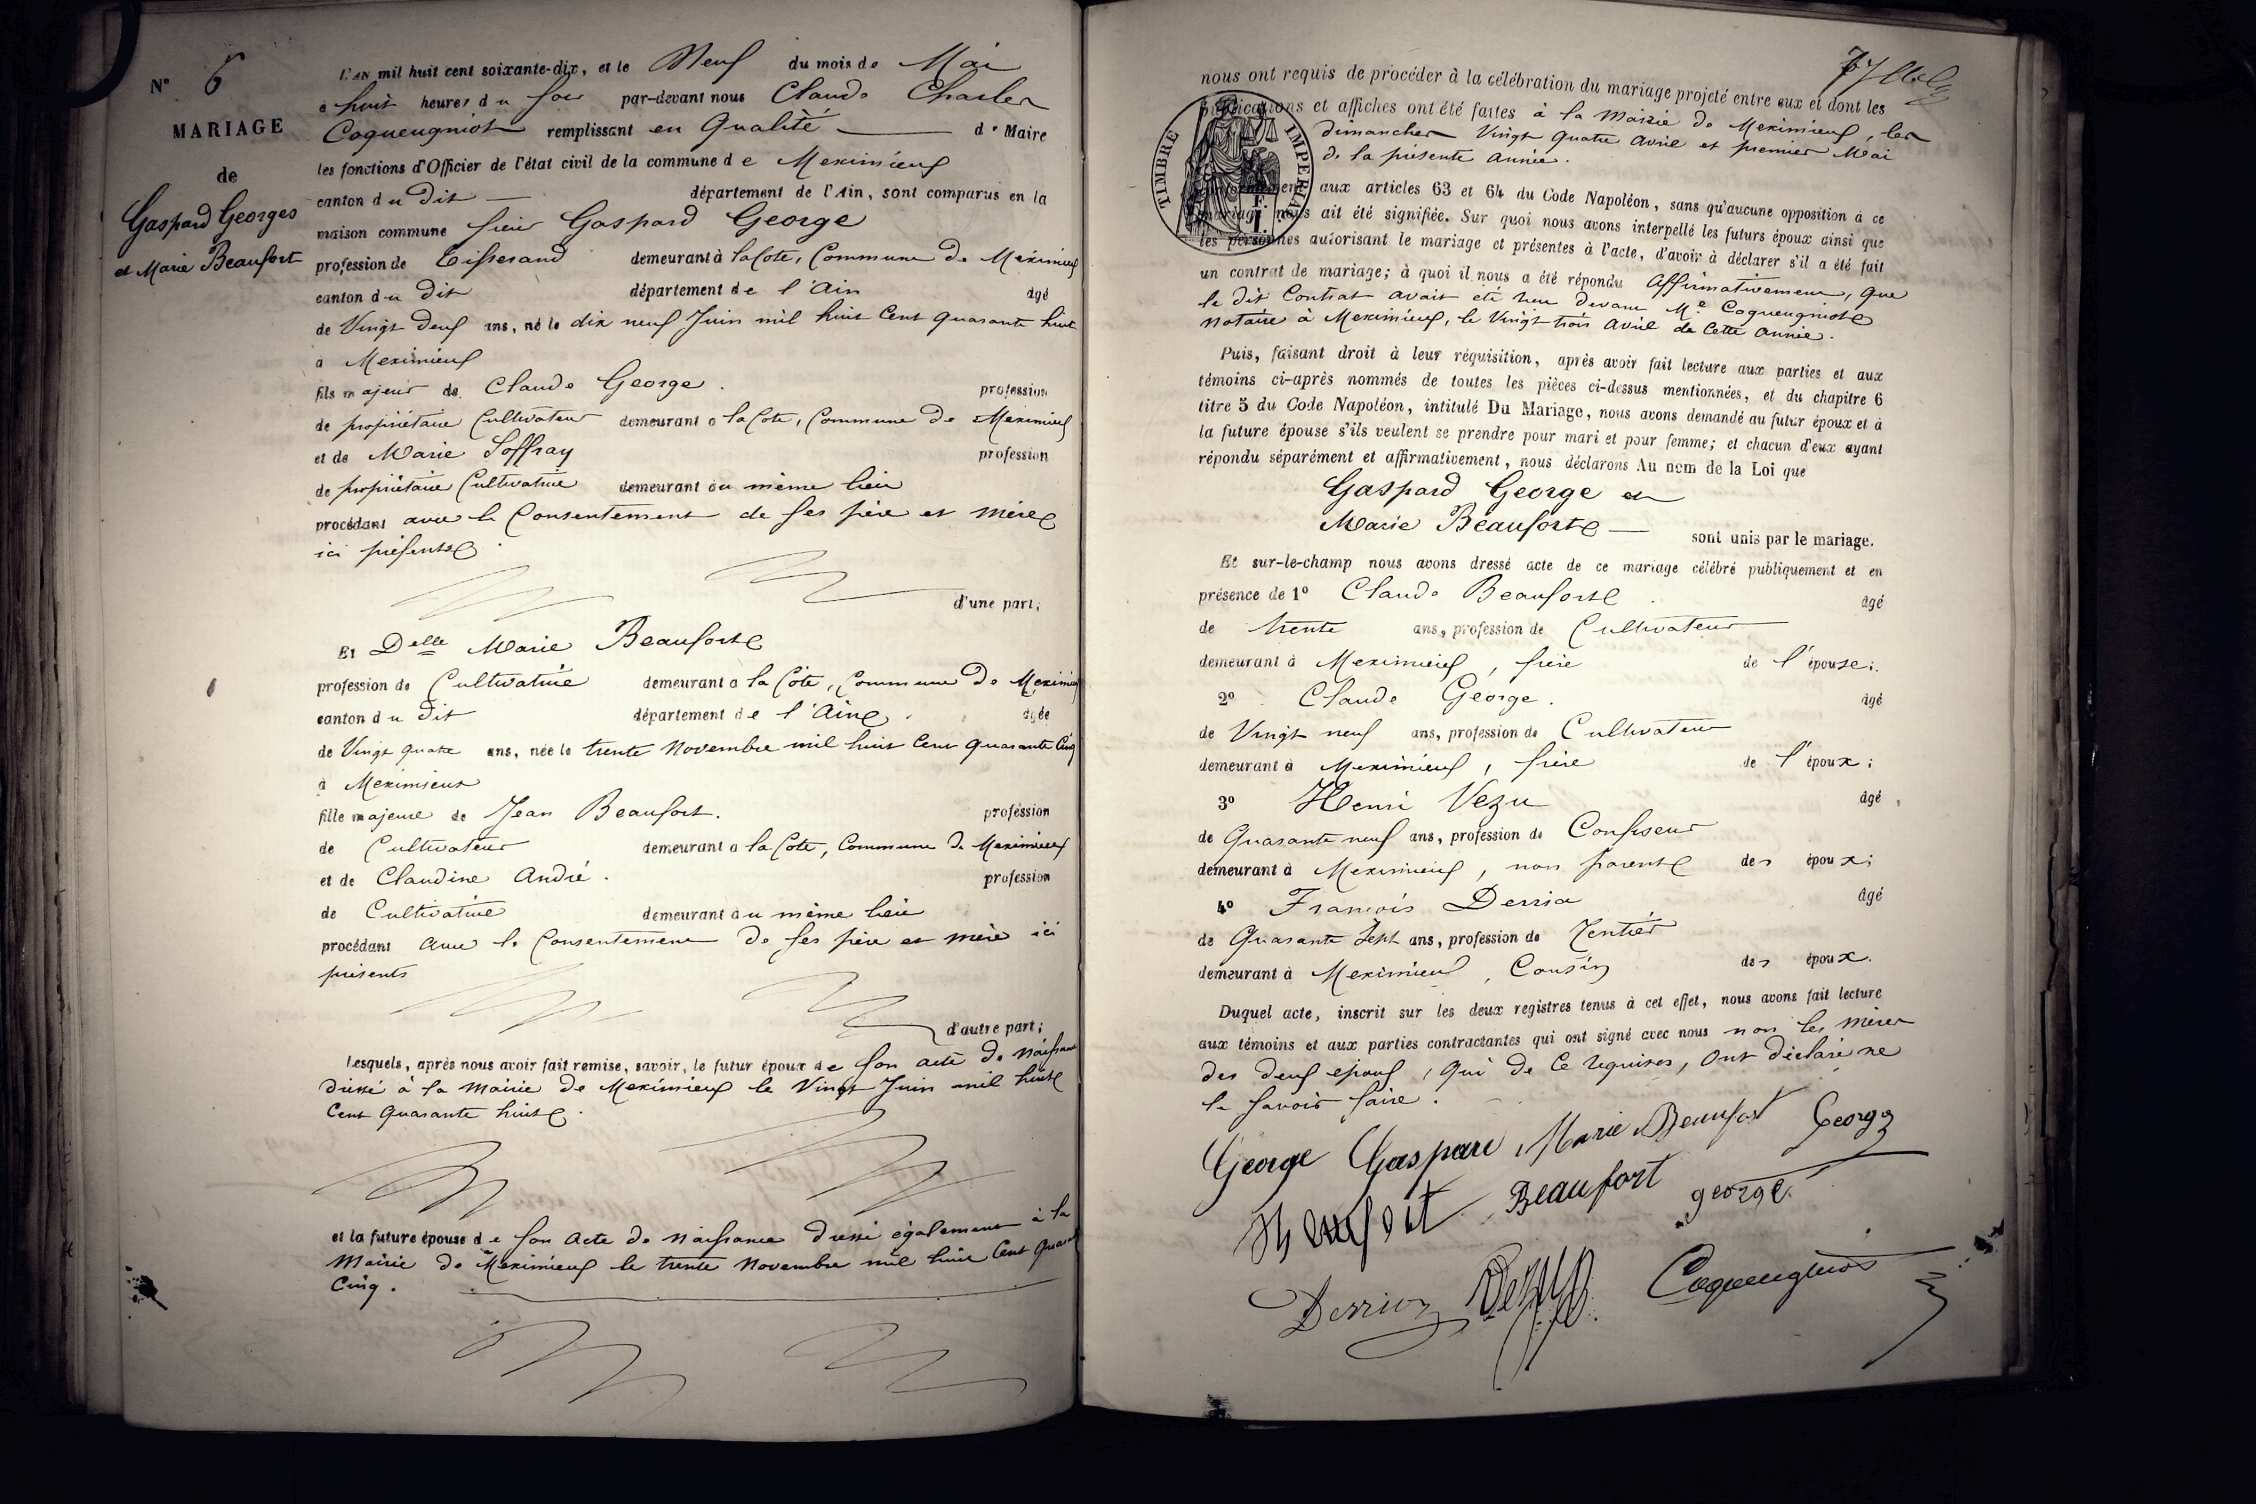 N° 6
MARIAGE
de
Gaspard Georges
et Marie Beaufort
L'AN mil huit cent soixante-dix, et le Neuf du mois de Mai
à huit heures du soir par-devant nous Claude Charles
Coqueugniot remplissant en Qualité de Maire
les fonctions d'Officier de l'état civil de la commune de Meximieux
canton du dit département de l'Ain, sont comparus en la
maison commune sieur Gaspard George
profession de Tisserand demeurant à la Côte, Commune de Meximieux
canton du dit département de l'Ain âgé
de Vingt deux ans, né le dix neuf Juin mil huit Cent quarante huit
à Meximieux
fils majeur de Claude George. profession
de propriétaire Cultivateur demeurant à la Côte, Commune de Meximieux
et de Marie Soffray profession
de propriétaire Cultivatrice demeurant au même lieu
procédant avec le Consentement de ses père et mère
ici présents
d'une part;
Et Delle Marie Beaufort
profession de Cultivatrice demeurant à la Côte, Commune de Meximieux
canton du dit département de l'Ain. âgée
de Vingt quatre ans, née le trente Novembre mil huit Cent quarante Cinq
à Meximieux
fille majeure de Jean Beaufort. profession
de Cultivateur demeurant à la Côte, Commune de Meximieux
et de Claudine André. profession
de Cultivatrice demeurant au même lieu
procédant avec le Consentement de ses père et mère ici
présents
d'autre part;
Lesquels, après nous avoir fait remise, savoir, le futur époux de son acte de Naissance
dressé à la Mairie de Meximieux le Vingt Juin mil huit
Cent quarante huit.
et la future épouse de son acte de Naissance dressé également à la
Mairie de Meximieux le trente Novembre mil huit Cent quarante
Cinq.
nous ont requis de procéder à la célébration du mariage projeté entre eux et dont les
publications et affiches ont été faites à la Mairie de Meximieux, les
dimanches Vingt quatre Avril et premier Mai
de la présente année.
TIMBRE IMPERIAL
Conformément aux articles 63 et 64 du Code Napoléon, sans qu'aucune opposition à ce
mariage nous ait été signifiée. Sur quoi nous avons interpellé les futurs époux ainsi que
les personnes autorisant le mariage et présentes à l'acte, d'avoir à déclarer s'il a été fait
un contrat de mariage; à quoi il nous a été répondu affirmativement, que
le dit Contrat avait été reçu devant Me Coqueugniot
Notaire à Meximieux, le Vingt trois Avril de Cette année.
Puis, faisant droit à leur réquisition, après avoir fait lecture aux parties et aux
témoins ci-après nommés de toutes les pièces ci-dessus mentionnées, et du chapitre 6
titre 5 du Code Napoléon, intitulé Du Mariage, nous avons demandé au futur époux et à
la future épouse s'ils veulent se prendre pour mari et pour femme; et chacun d'eux ayant
répondu séparément et affirmativement, nous déclarons Au nom de la Loi que
Gaspard George et
Marie Beaufort
sont unis par le mariage.
Et sur-le-champ nous avons dressé acte de ce mariage célébré publiquement et en
présence de 1° Claude Beaufort. âgé
de trente ans, profession de Cultivateur
demeurant à Meximieux, frère de l'épouse;
2° Claude George. âgé
de Vingt neuf ans, profession de Cultivateur
demeurant à Meximieux, frère de l'époux;
3° Henri Vezu âgé
de Quarante neuf ans, profession de Confiseur
demeurant à Meximieux, non parent des époux;
4° François Derrias âgé
de Quarante Sept ans, profession de Rentier
demeurant à Meximieux, Cousin des époux.
Duquel acte, inscrit sur les deux registres tenus à cet effet, nous avons fait lecture
aux témoins et aux parties contractantes qui ont signé avec nous non les mères
des deux époux, qui de ce requises, ont déclaré ne
le savoir faire.
George Gaspard Marie Beaufort George
Beaufort Beaufort george
Vezu Coqueugniot